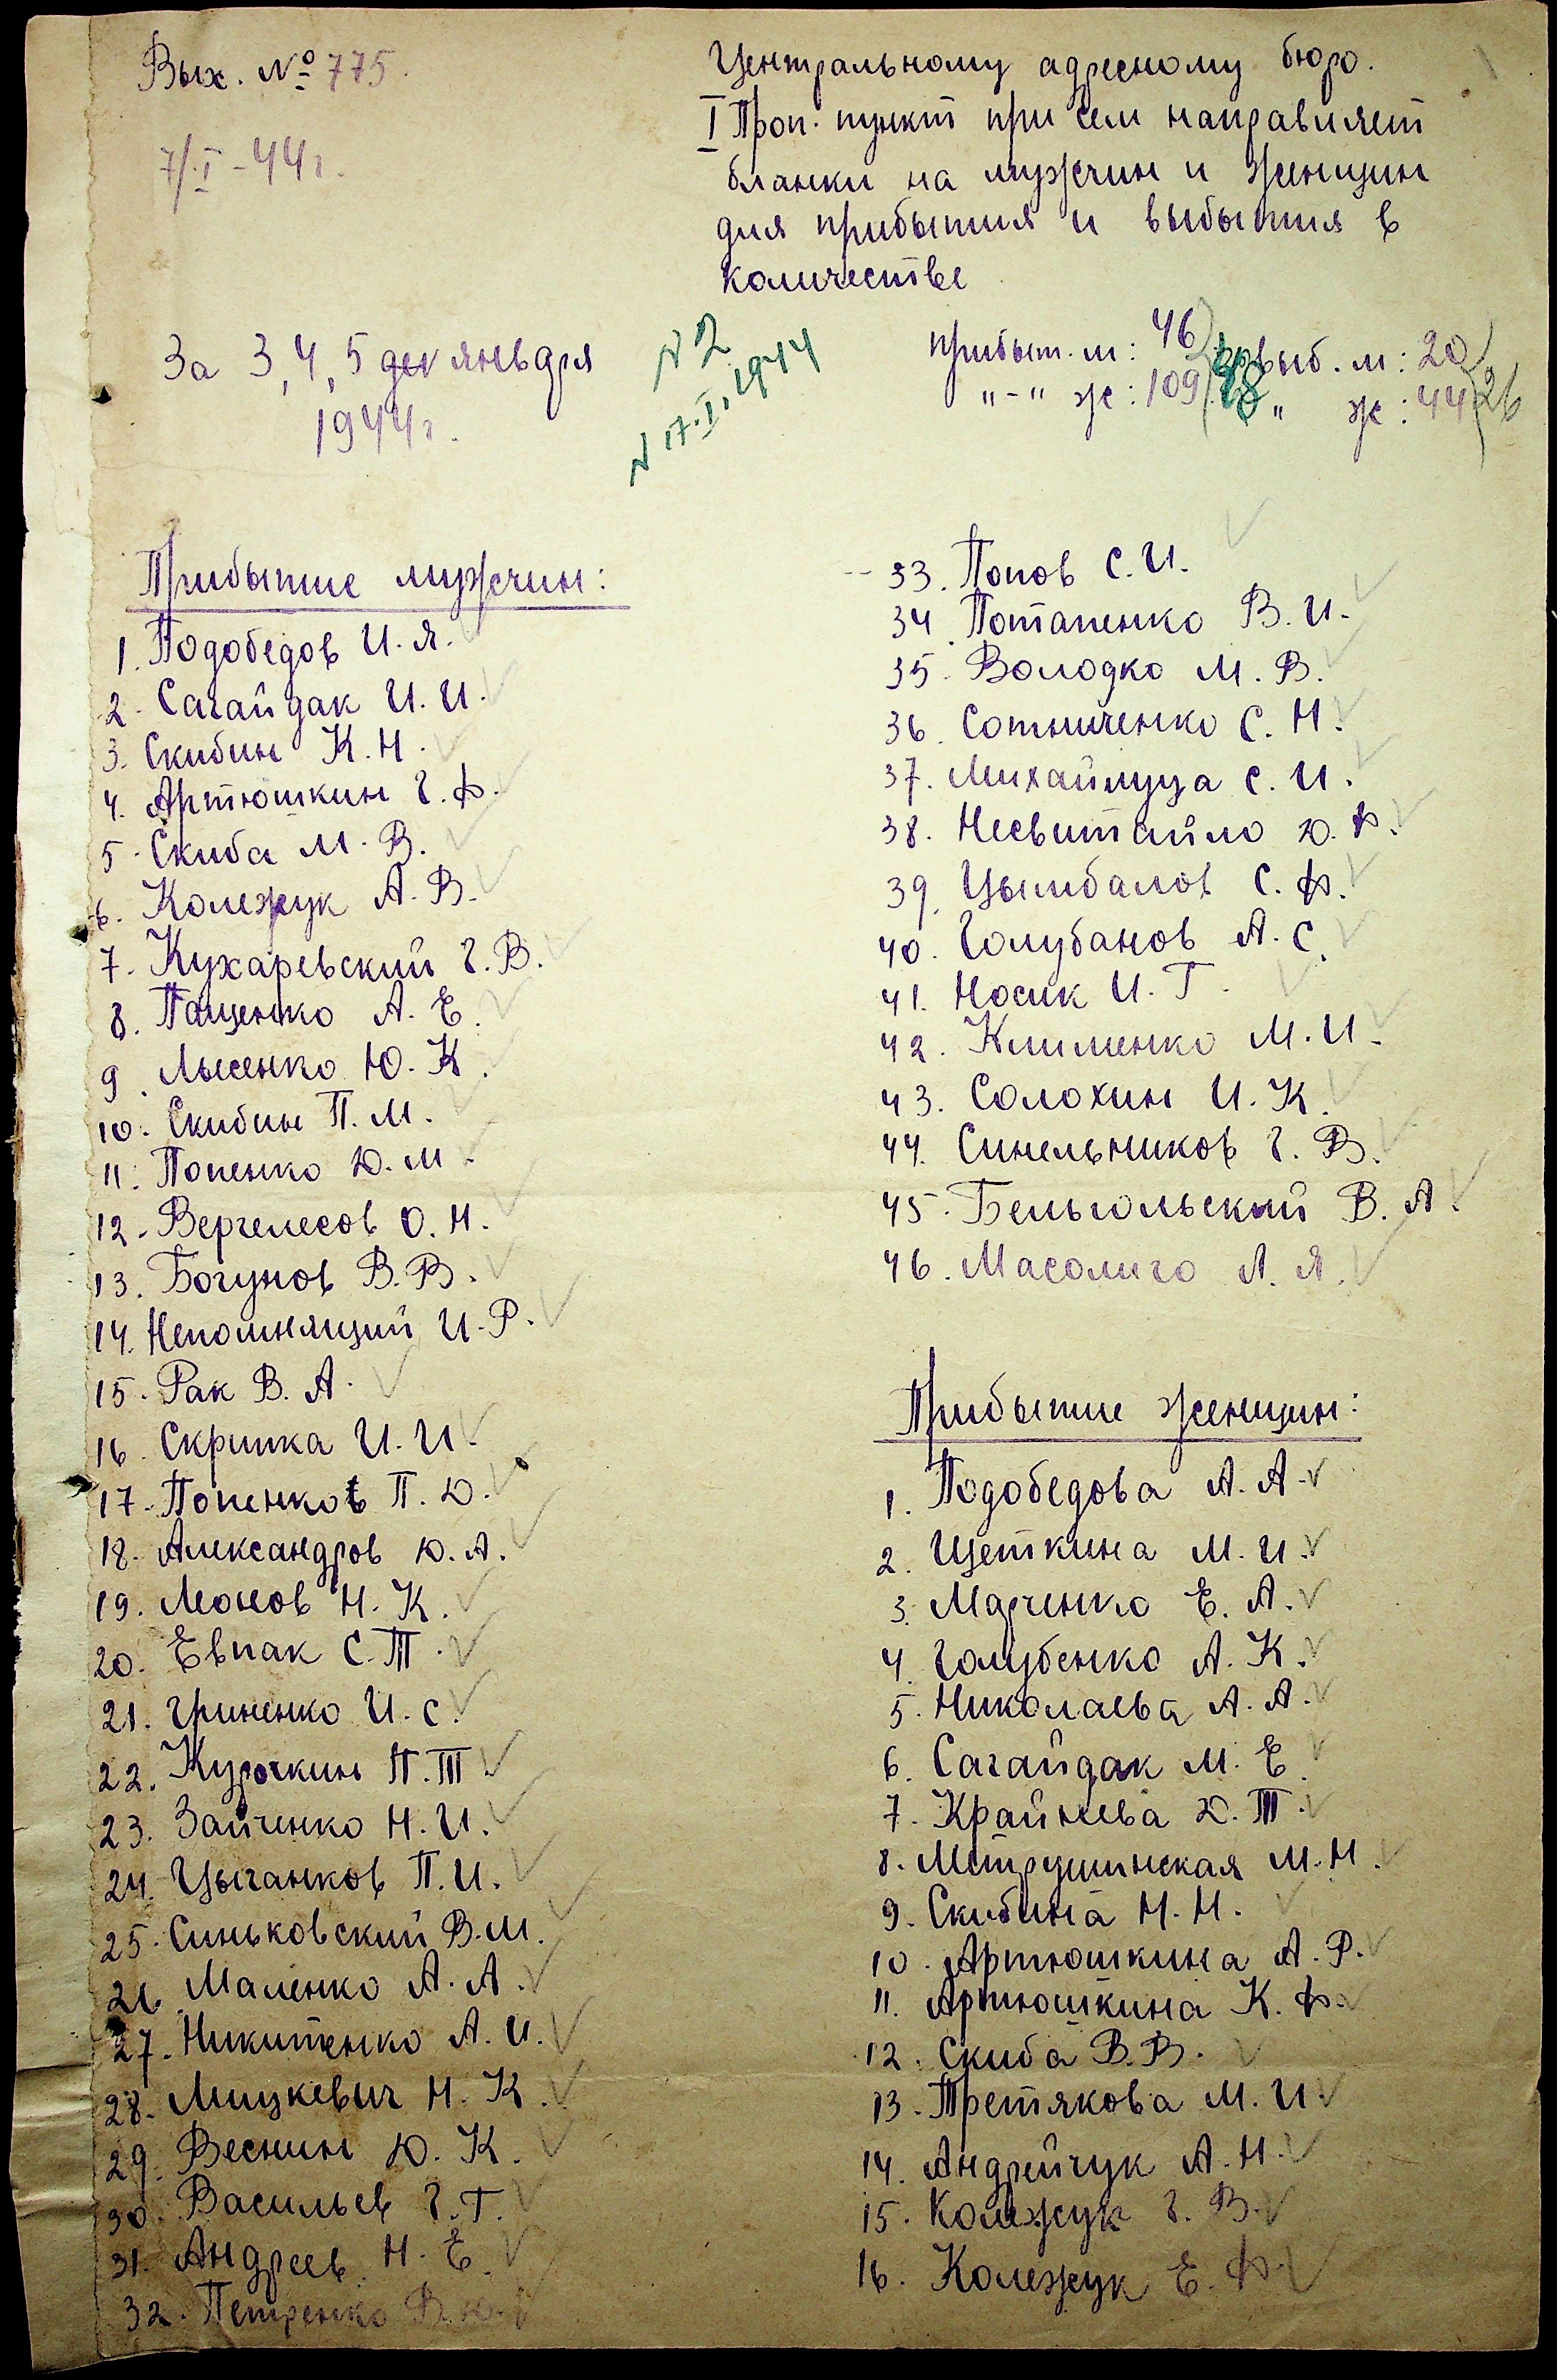 Вых. № 775.
7/I-44г.
Центральному адресному бюро.
I Проп. пункт при сем направляет
бланки на мужчин и женщин
для прибытия и выбытия в
количестве
За 3, 4, 5 января
1944г.
N 2
N 17.I.1944
прибыт. м: 46
"-" ж: 109
выб. м: 20
" ж: 44
26
Прибытие мужчин:
1. Подобедов И.Я.
2. Сагайдак И.И.
3. Скибин К.Н.
4. Артюшкин Г.Ф.
5. Скиба М.В.
6. Колежук А.В.
7. Кухаревский Г.В.
8. Пащенко А.Е.
9. Лысенко Ю.К.
10. Скибин П.М.
11. Попенко Д.М.
12. Вергелесов О.Н.
13. Богунов В.В.
14. Непомнящий И.Р.
15. Рак В.А.
16. Скрипка И.И.
17. Попенков П.Д.
18. Александров Д.А.
19. Леонов Н.К.
20. Евпак С.Т.
21. Гриненко И.С.
22. Курочкин П.Т.
23. Зайченко Н.И.
24. Цыганков П.И.
25. Синьковский В.М.
26. Маленко А.А.
27. Никитенко А.И.
28. Мицкевич Н.К.
29. Веснин Д.К.
30. Васильев Г.Г.
31. Андреев Н.Е.
32. Петренко В.
33. Попов С.И.
34. Потапенко В.И.
35. Володко М.В.
36. Сотниченко С.Н.
37. Михайлуца С.И.
38. Несвитайло Д.Ф.
39. Цымбалов С.Ф.
40. Голубанов А.С.
41. Носик И.Г.
42. Клименко М.И.
43. Солохин И.К.
44. Синельников Г.В.
45. Бельгольский В.А.
46. Масолиго Л.Я.
Прибытие женщин:
1. Подобедова А.А.
2. Щеткина М.И.
3. Марченко Е.А.
4. Голубенко А.К.
5. Николаева А.А.
6. Сагайдак М.Е.
7. Крайнева Д.Т.
8. Метрушинская М.Н.
9. Скибина Н.Н.
10. Артюшкина А.Р.
11. Артюшкина К.Ф.
12. Скиба В.В.
13. Третякова М.И.
14. Андрейчук А.Н.
15. Колежук Г.В.
16. Колежук Е.Ф.